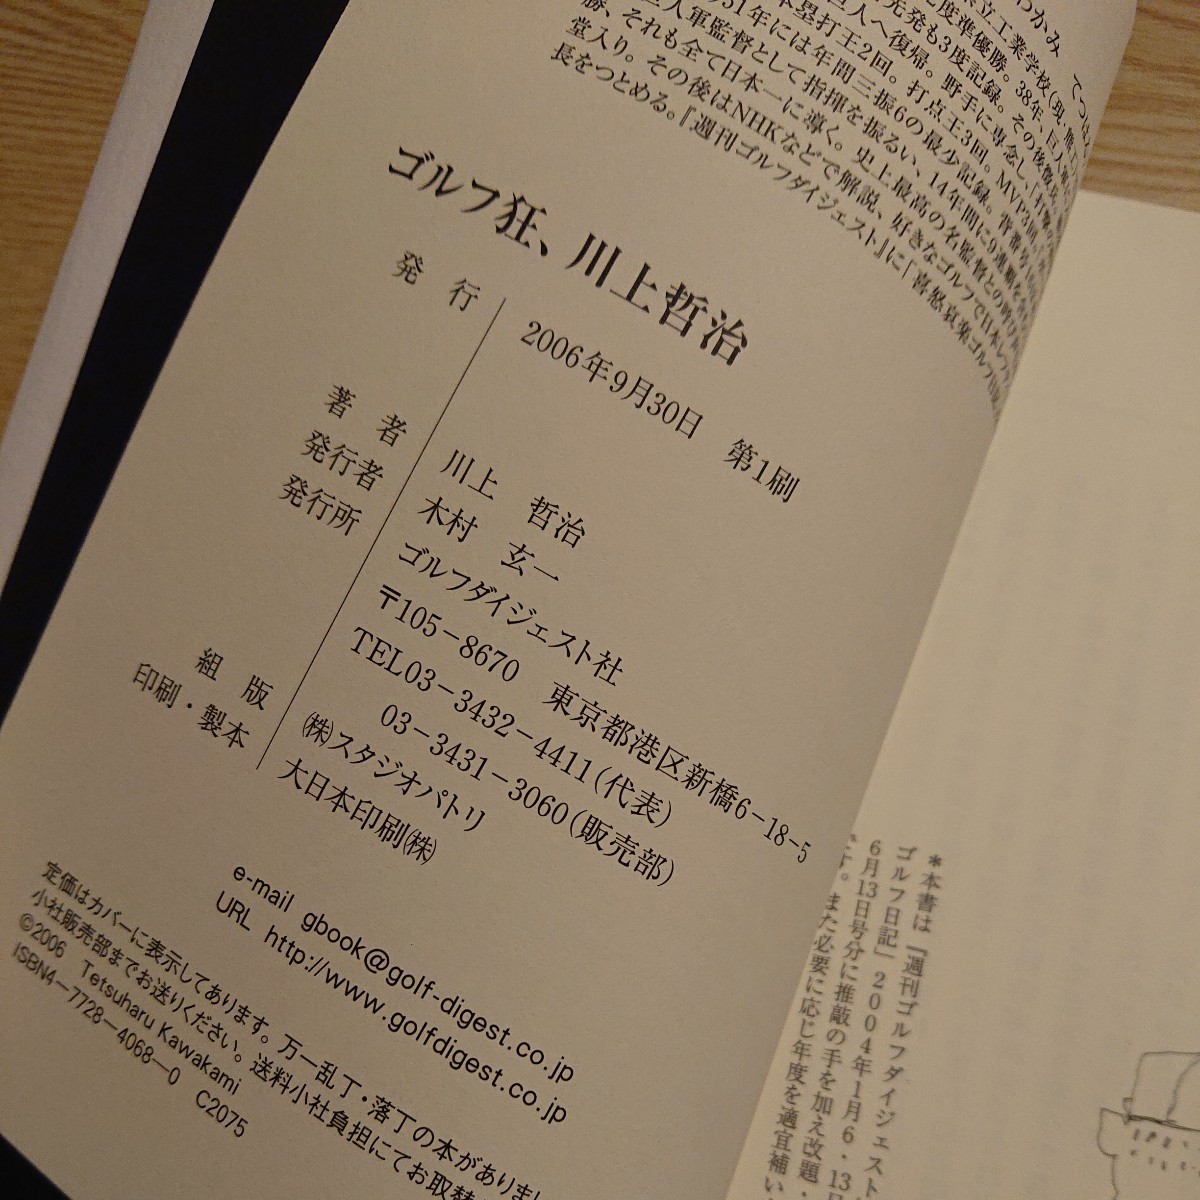 わかみ てつはる
立工業学校(現・熊工)
度準優勝。38年、巨人軍
先発も3度記録。その後徴兵
巨人へ復帰。野手に専念し、「打撃の
本塁打王2回。打点王3回。MVP3回。
51年には年間三振6の最少記録。背番号16
巨人軍監督として指揮を振るい、14年間に9連覇を含む
勝、それも全て日本一に導く。史上最高の名監督との呼び
堂入り。その後はNHKなどで解説、好きなゴルフで日本
長をつとめる。『週刊ゴルフダイジェスト』に「喜怒哀楽ゴルフ日記
ゴルフ狂、川上哲治
発 行 2006年9月30日 第1刷
著 者 川上 哲治
発行者 木村 玄一
発行所 ゴルフダイジェスト社
〒105−8670 東京都港区新橋6−18−5
TEL03−3432−4411(代表)
03−3431−3060(販売部)
組 版 ㈱スタジオパトリ
印刷・製本 大日本印刷㈱
e-mail gbook@golf-digest.co.jp
URL http://www.golfdigest.co.jp
定価はカバーに表示してあります。万一乱丁・落丁の本がありまし
小社販売部までお送りください。送料小社負担にてお取替
©2006 Tetsuharu Kawakami
ISBN4―7728―4068―0 C2075
＊本書は『週刊ゴルフダイジェスト
ゴルフ日記」2004年1月6・13日
6月13日号分に推敲の手を加え改題・
す。また必要に応じ年度を適宜補い